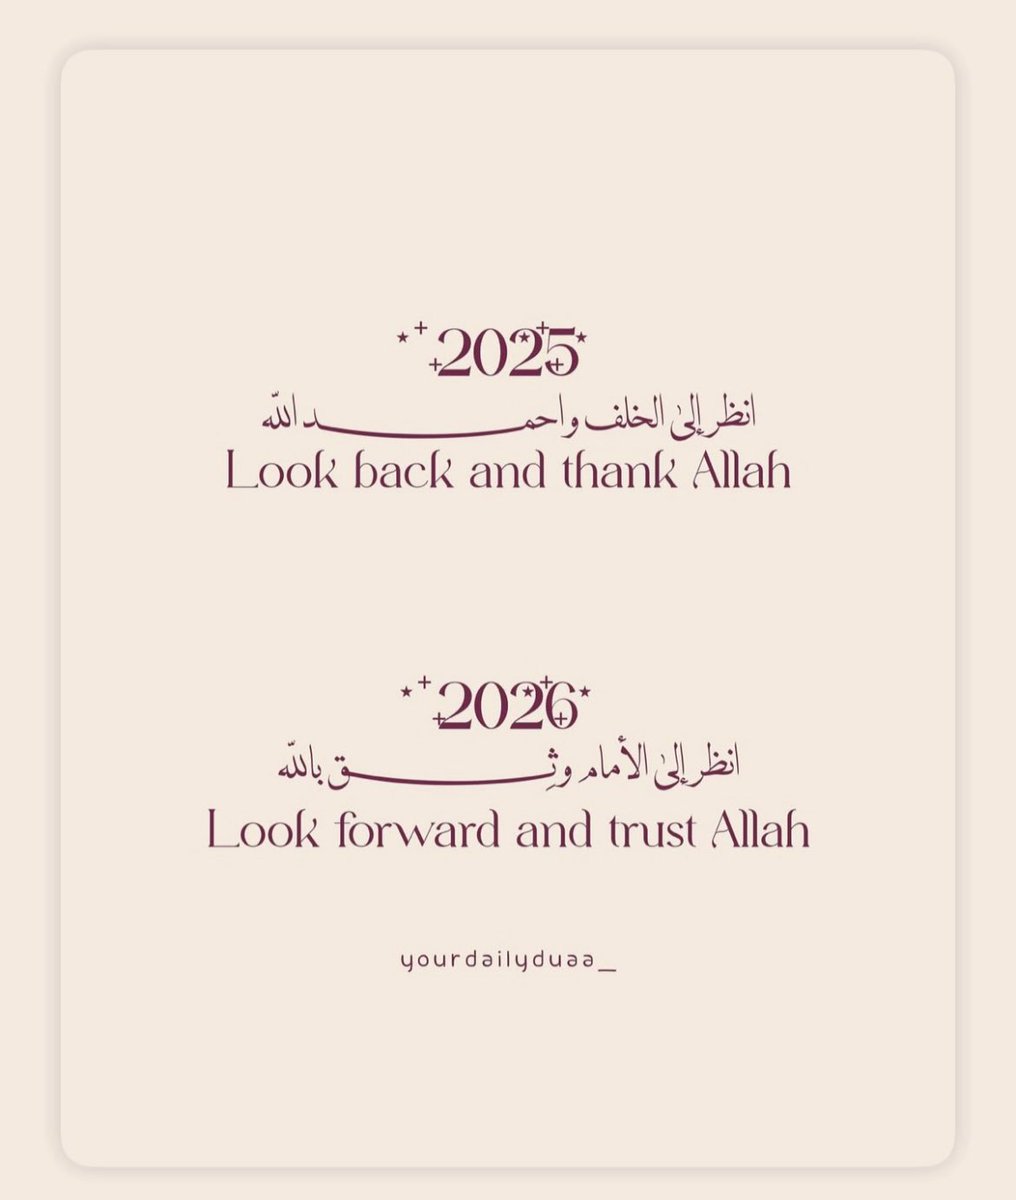 2025
انظر إلى الخلف واحمد الله
Look back and thank Allah
2026
انظر إلى الأمام وثِق بالله
Look forward and trust Allah
yourdailyduaa_